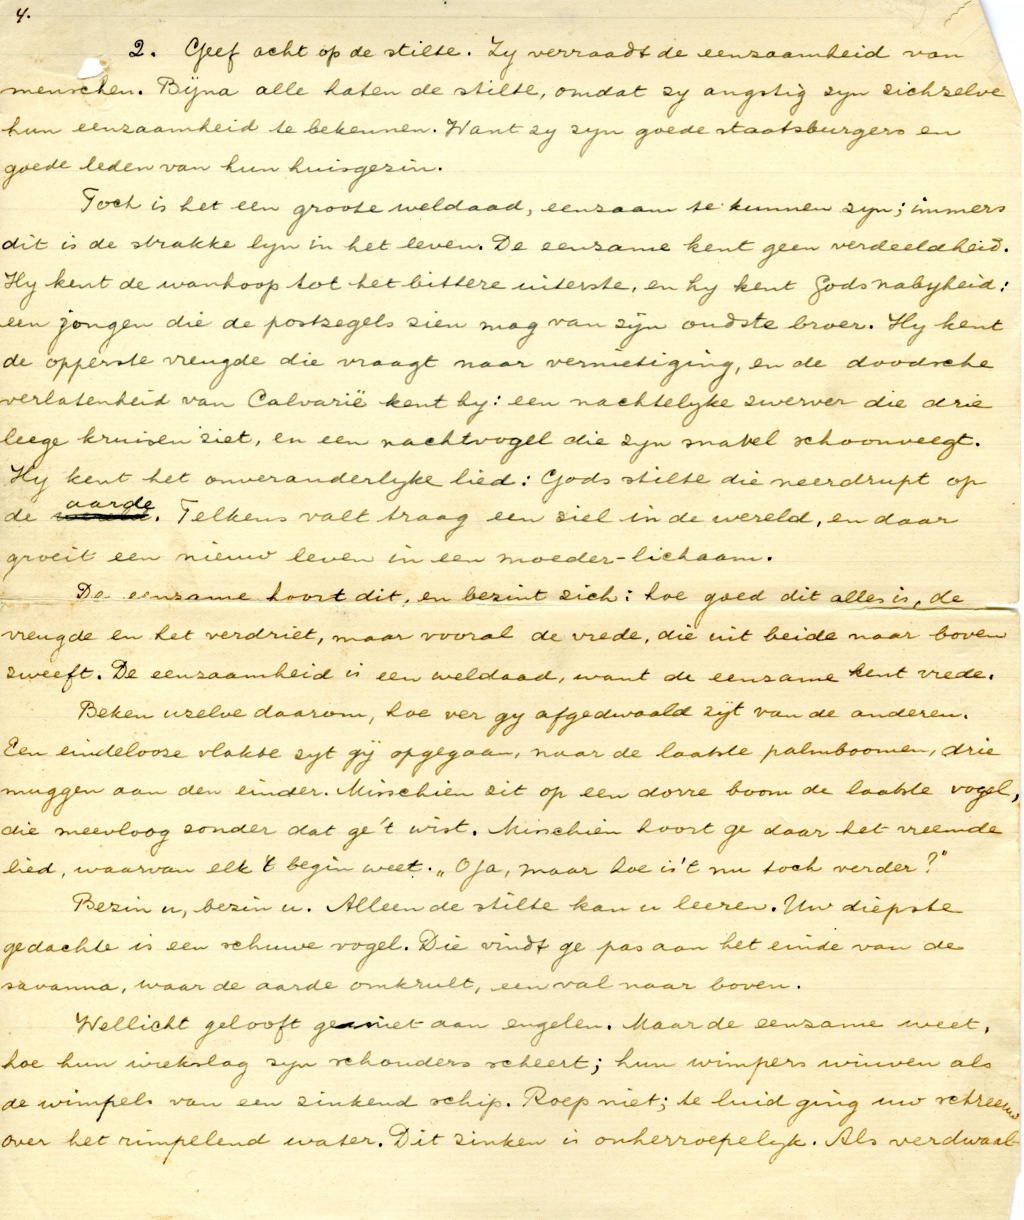 4.
2. Geef acht op de stilte. Zy verraadt de eenzaamheid van
menschen. Bijna alle haten de stilte, omdat zy angstig zyn zichzelve
hun eenzaamheid te bekennen. Want zy zyn goede staatsburgers en
goede leden van hun huisgezin.
Toch is het een groote weldaad, eenzaam te kunnen zyn; immers
dit is de strakke lyn in het leven. De eenzame kent geen verdeeldheid.
Hy kent de wanhoop tot het bittere uiterste, en hy kent Gods nabyheid:
een jongen die de postzegels zien mag van zijn oudste broer. Hy kent
de opperste vreugde die vraagt naar vernietiging, en de doodsche
verlatenheid van Calvarië kent hy: een nachtelyke zwerver die drie
leege kruisen ziet, en een nachtvogel die zyn snavel schoonveegt.
Hy kent het onveranderlyke lied: Gods stilte die neerdrupt op
de aarde. Telkens valt traag een ziel in de wereld, en daar
groeit een nieuw leven in een moeder-lichaam.
De eenzame hoort dit, en bezint zich: hoe goed dit alles is, de
vreugde en het verdriet, maar vooral de vrede, die uit beide naar boven
zweeft. De eenzaamheid is een weldaad, want de eenzame kent vrede.
Beken uzelve daarom, hoe ver gy afgedwaald zijt van de anderen.
Een eindelooze vlakte zyt gij opgegaan, naar de laatste palmboomen, drie
muggen aan den einder. Misschien zit op een dorre boom de laatste vogel,
die meevloog zonder dat ge 't wist. Misschien hoort ge daar het vreemde
lied, waarvan elk 't begin weet. „O ja, maar hoe is 't nu toch verder?"
Bezin u, bezin u. Alleen de stilte kan u leeren. Uw diepste
gedachte is een schuwe vogel. Die vindt ge pas aan het einde van de
savanna, waar de aarde omkrult, een val naar boven.
Wellicht gelooft ge niet aan engelen. Maar de eenzame weet,
hoe hun wiekslag zyn schouders scheert; hun wimpers wuiven als
de wimpels van een zinkend schip. Roep niet; te luid ging uw schreeuw
over het rimpelend water. Dit zinken is onherroepelyk. Als verdwaal-